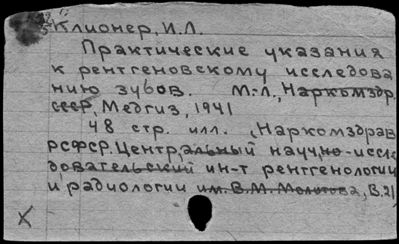 Клионер, И.Л.
Практические указания
к рентгеновскому исследова
нию зубов. М.-Л., Наркомздр.
СССР, Медгиз, 1941
48 стр. илл. (Наркомздрав
РСФСР. Центральный научно-иссле
довательский ин-т рентгенологии
и радиологии им. В.М. Молотова, В.2)